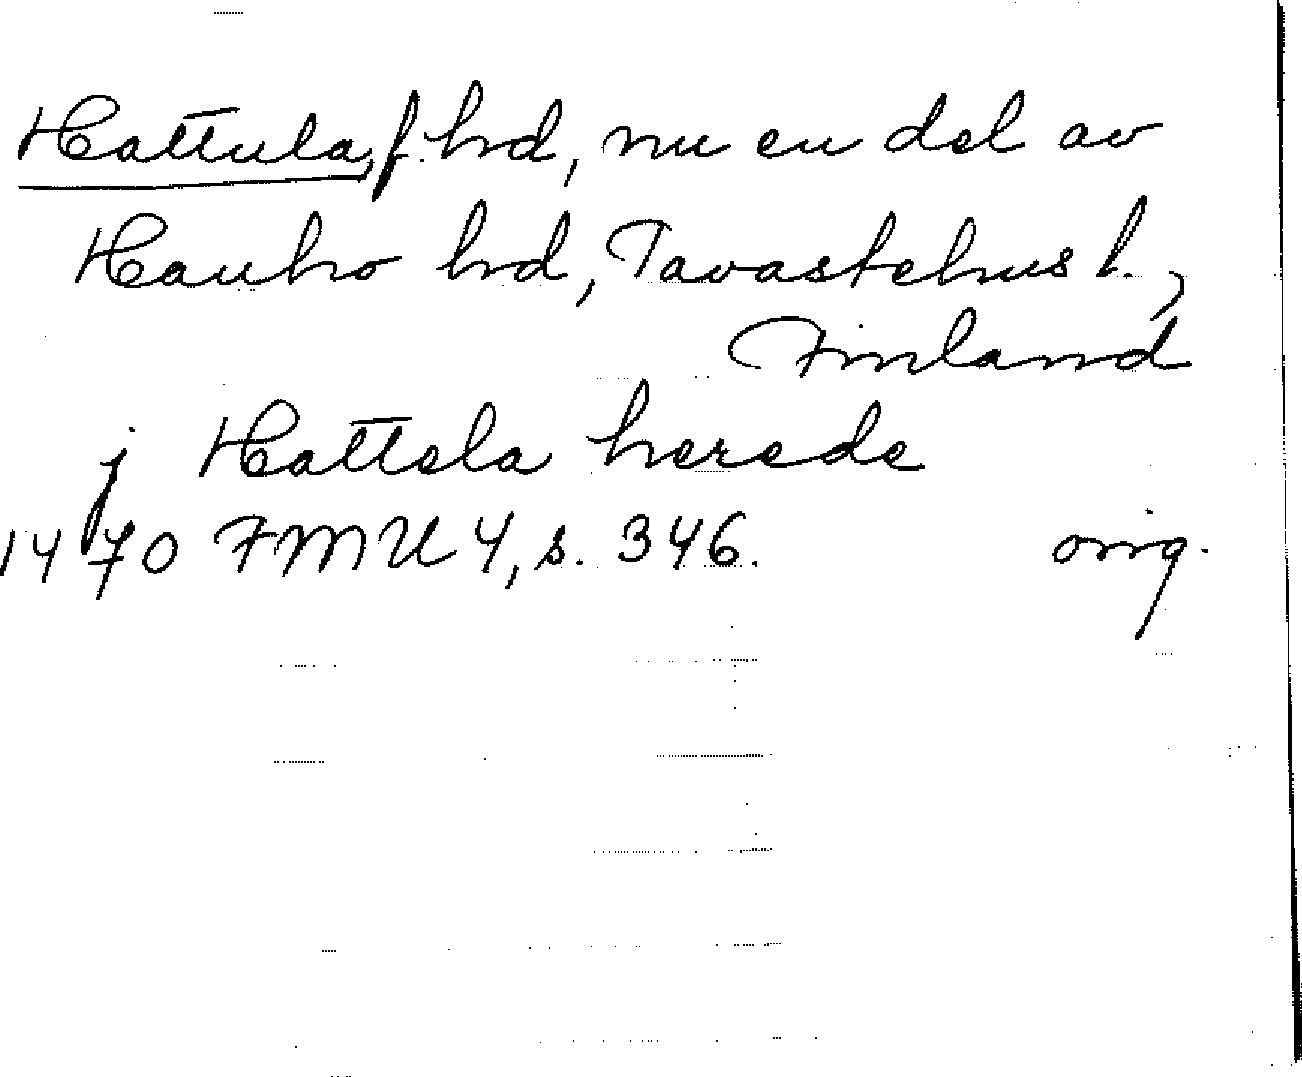 Hattula, f. hd, nu en del av
Hauho hd, Tavastehus l.,
Finland
j Hattela herede
1470 FMU 4, s. 346. orig.